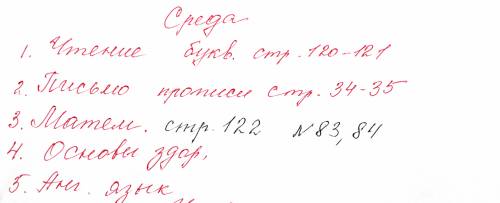 Среда
1. Чтение букв. стр. 120-121
2. Письмо прописи стр. 34-35
3. Матем. стр. 122 №83, 84
4. Основы здор.
5. Анг. язык